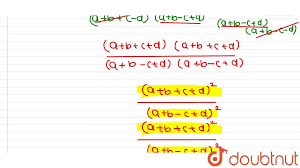 (a+b+c-d) (a+b-c+d) (a+b-c+d) (a+b-c-d)
(a+b+c+d) (a+b+c+d)
(a+b-c+d) (a+b-c+d)
(a+b+c+d)²
(a+b-c+d)²
(a+b+c+d)²
(a+b-c+d)²